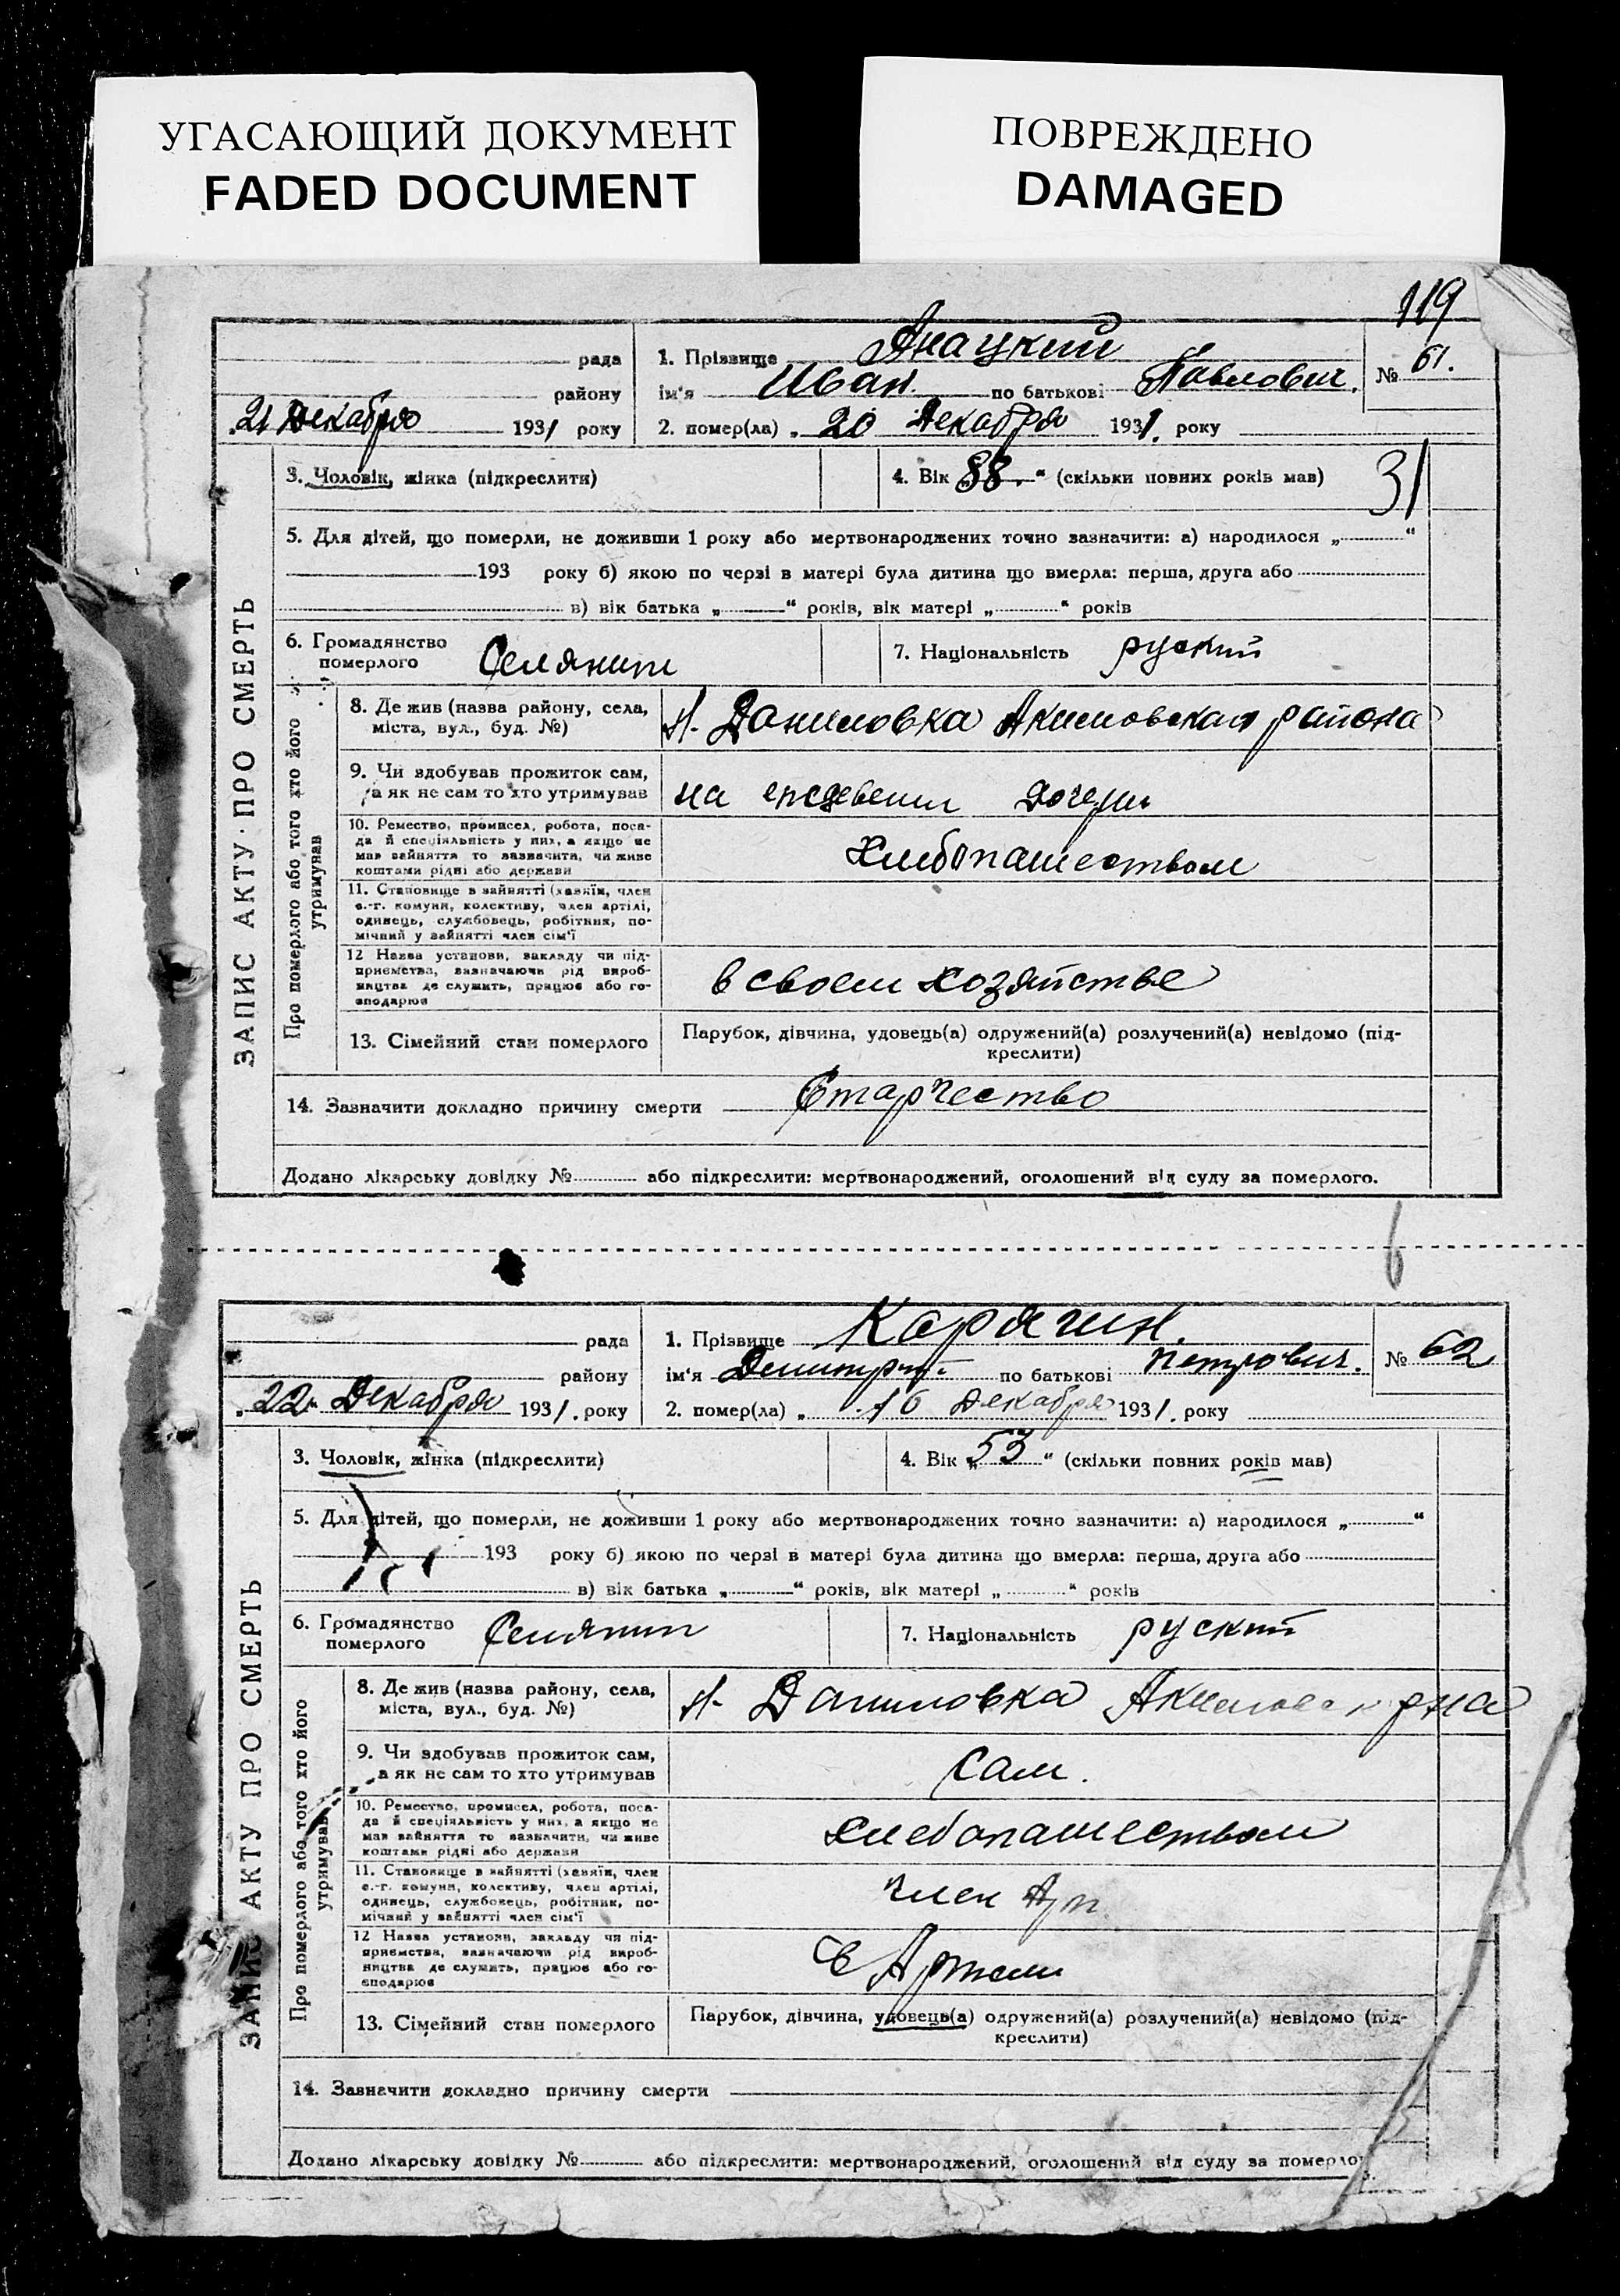 УГАСАЮЩИЙ ДОКУМЕНТ
FADED DOCUMENT
ПОВРЕЖДЕНО
DAMAGED
119
рада
1. Прізвище Анацкий
району
ім'я Иван по батькові Павлович. № 61.
21 Декабря 1931 року
2. помер(ла) „ 20 Декабря 1931. року
3. Чоловік, жінка (підкреслити)
4. Вік „88.“ (скільки повних років мав)
31
5. Для дітей, що померли, не доживши 1 року або мертвонароджених точно зазначити: а) народилося „ “
193 року б) якою по черзі в матері була дитина що вмерла: перша, друга або
в) вік батька „ “ років, вік матері „ “ років
6. Громадянство
померлого
Селянин
7. Національність руский
ЗАПИС АКТУ ПРО СМЕРТЬ
Про померлого або того хто його
утримував
8. Де жив (назва району, села,
міста, вул., буд. №)
Н. Даниловка Акимовская района
9. Чи здобував прожиток сам,
а як не сам то хто утримував
на дочери
10. Ремество, промисел, робота, поса-
да й спеціяльність у них, а якщо не
мав зайняття то зазначити, чи живе
коштами рідні або держави
Хлебопашеством
11. Становище в зайнятті (хазяїн, член
с.-г. комуни, колективу, член артілі,
одинець, службовець, робітник, по-
мічний у зайнятті член сім'ї
12 Назва установи, закладу чи під-
приємства, зазначаючи рід вироб-
ництва де служить, працює або го-
сподарює
в своем хозяйстве
13. Сімейний стан померлого
Парубок, дівчина, удовець(а) одружений(а) розлучений(а) невідомо (під-
креслити)
14. Зазначити докладно причину смерти Старчество
Додано лікарську довідку № або підкреслити: мертвонароджений, оголошений від суду за померлого.
6
рада
1. Прізвище Карагин.
району
ім'я Дмитрий по батькові Петрович. № 62
„22“ Декабря 1931. року
2. помер(ла) „ 16 Декабря 1931. року
3. Чоловік, жінка (підкреслити)
4. Вік „53“ (скільки повних років мав)
5. Для дітей, що померли, не доживши 1 року або мертвонароджених точно зазначити: а) народилося „ “
193 року б) якою по черзі в матері була дитина що вмерла: перша, друга або
в) вік батька „ “ років, вік матері „ “ років
6. Громадянство
померлого
Селянин
7. Національність руский
ЗАПИС АКТУ ПРО СМЕРТЬ
Про померлого або того хто його
утримував
8. Де жив (назва району, села,
міста, вул., буд. №)
Н. Даниловка Акимовск р-на
9. Чи здобував прожиток сам,
а як не сам то хто утримував
Сам.
10. Ремество, промисел, робота, поса-
да й спеціяльність у них, а якщо не
мав зайняття то зазначити, чи живе
коштами рідні або держави
Хлебопашеством
11. Становище в зайнятті (хазяїн, член
с.-г. комуни, колективу, член артілі,
одинець, службовець, робітник, по-
мічний у зайнятті член сім'ї
член Арт.
12 Назва установи, закладу чи під-
приємства, зазначаючи рід вироб-
ництва де служить, працює або го-
сподарює
в Артели
13. Сімейний стан померлого
Парубок, дівчина, удовець(а) одружений(а) розлучений(а) невідомо (під-
креслити)
14. Зазначити докладно причину смерти
Додано лікарську довідку № або підкреслити: мертвонароджений, оголошений від суду за померлого.